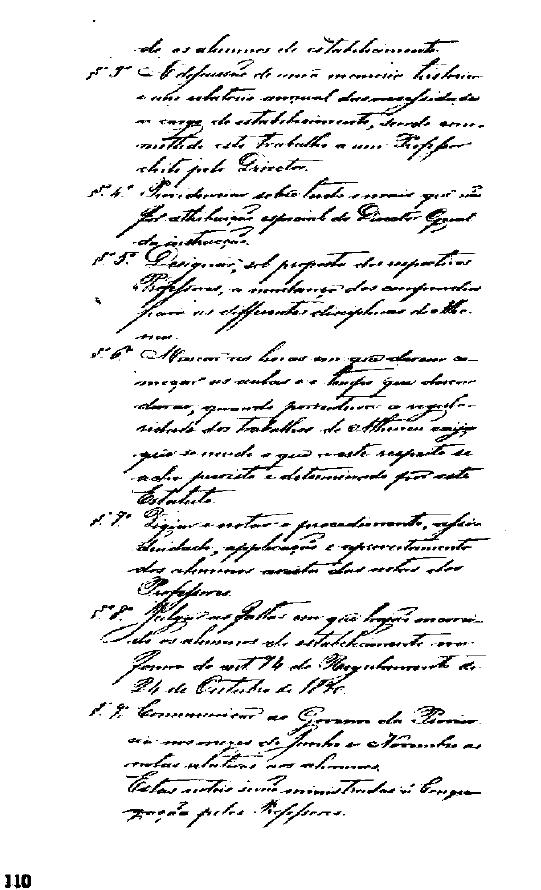 do os alumnos do estabelecimento.
§ 3º A defussão de uma memoria historica
e um relatorio annual das necessidades
a cargo do estabelecimento, sendo com-
mettido este trabalho a um Professor
eleito pelo Director.
§ 4.º Providenciar sobre tudo o mais que não
for attribuição especial do Director Geral
da instrucção.
§ 5.º Designar, sob proposta dos respectivos
Professores, a mudança dos compendios
para as differentes disciplinas do Athe-
neu.
§ 6º Marcar as horas em que devem co-
meçar as aulas e o tempo que devem
durar, quando porventura a regula-
ridade dos trabalhos do Atheneu exija
que se mude o que a este respeito se
acha previsto e determinado por este
Estatuto.
§ 7º Vigiar e notar o procedimento, assi-
duidade, applicação e aproveitamento
dos alumnos a vista das notas dos
Professores.
§ 8º Julgar as faltas em que hajão incorri-
do os alumnos do estabelecimento na
forma do art. 74 do Regulamento de
24 de Outubro de
§ 9º Communicar ao Governo da Provin-
cia nos mezes de Junho e Novembro as
notas relativas aos alumnos.
Estas notas serão ministradas á Congre-
gação pelos Professores.
110